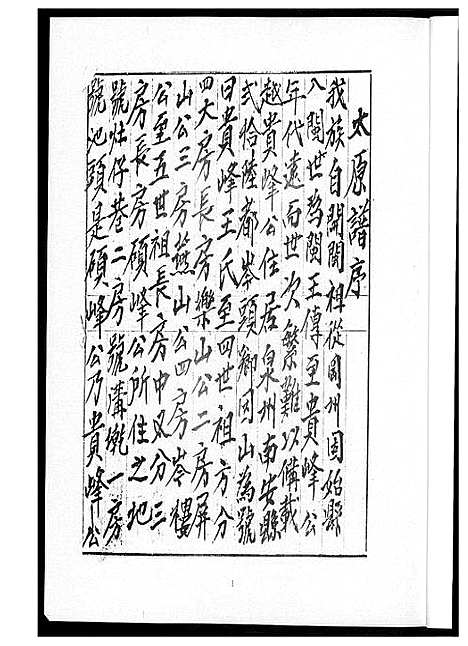 太原譜序
我族自開閩祖從固州固始縣
入閩世為閩王傳至貴峰公
年代遠而世次繁難以備載
越貴峰公住居泉州南安縣
弍拾陸都岑頭鄉因山為號
曰貴峰王氏至四世祖方分
四大房長房樂山公二房屏
山公三房熊山公四房岑樓
公至五世祖長房中又分三
房長房碩峰公所住之地
號灶仔巷二房號溝墘一房
號池頭是碩峰公乃貴峰公